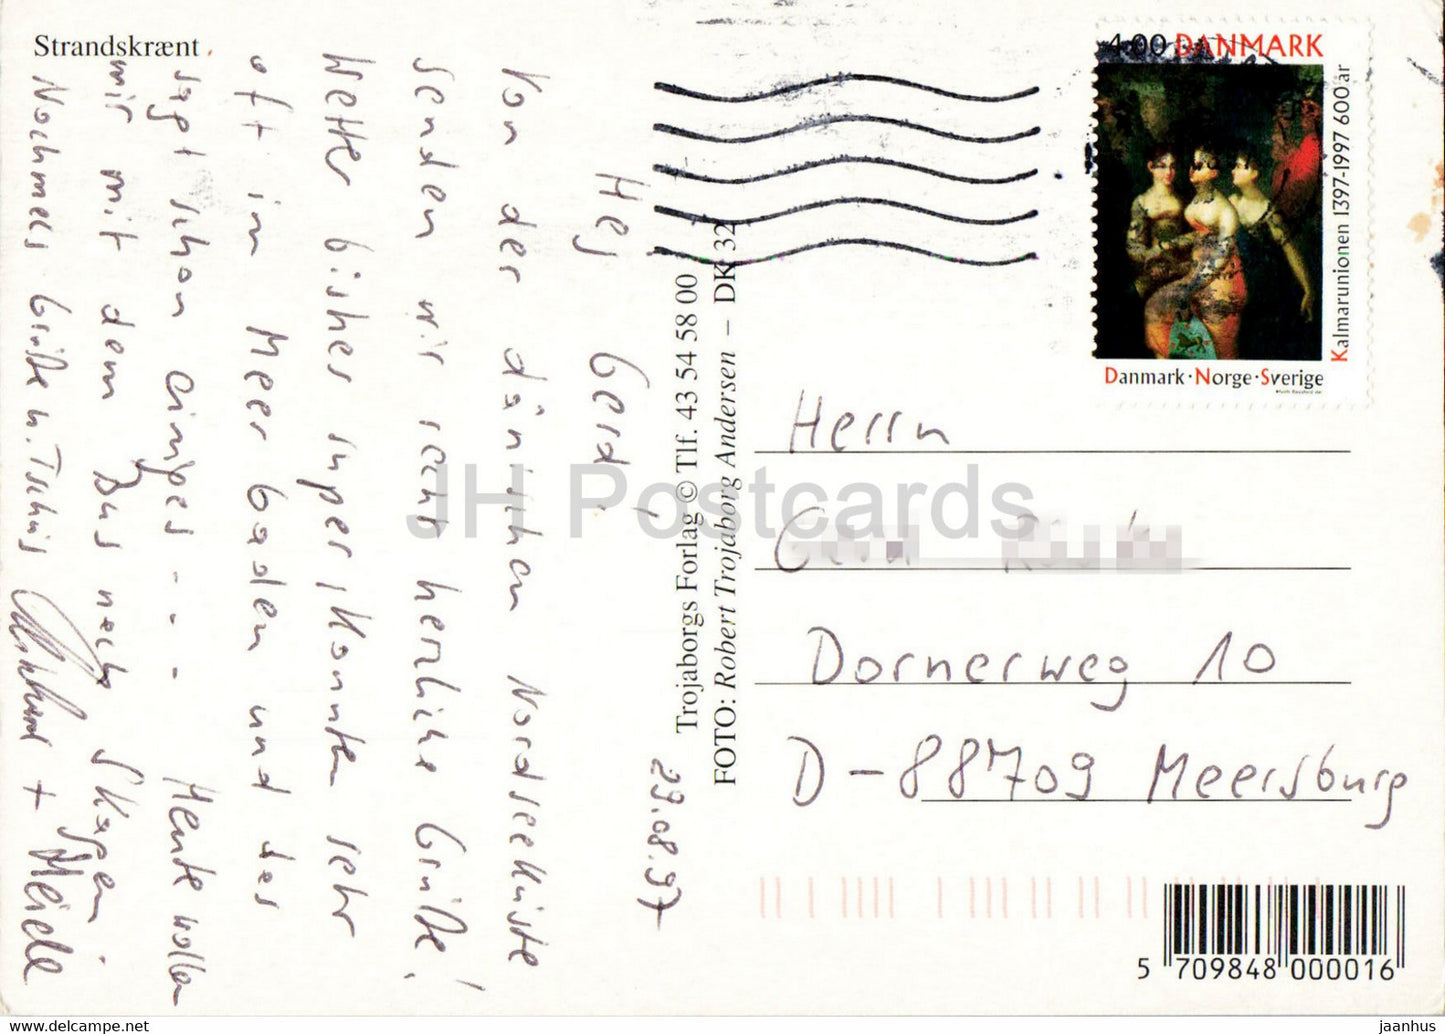 Strandskrænt
29.08.97
Hej Gerd,
Von der dänischen Nordseeküste
senden wir recht herzliche Grüße!
Wetter bisher super, konnten sehr
oft im Meer baden und das
sagt schon einiges - - - Heute wollen
wir mit dem Bus nach Skagen
Nochmals Grüße u. Tschüs
+ Heide
Trojaborgs Forlag © Tlf. 43 54 58 00
FOTO: Robert Trojaborg Andersen – DK 32
4.00 DANMARK
Kalmarunionen 1397-1997 600 år
Danmark·Norge·Sverige
Herrn
Gerd
Dornerweg 10
D-88709 Meersburg
5 709848 000016
JH Postcards
jaanhus